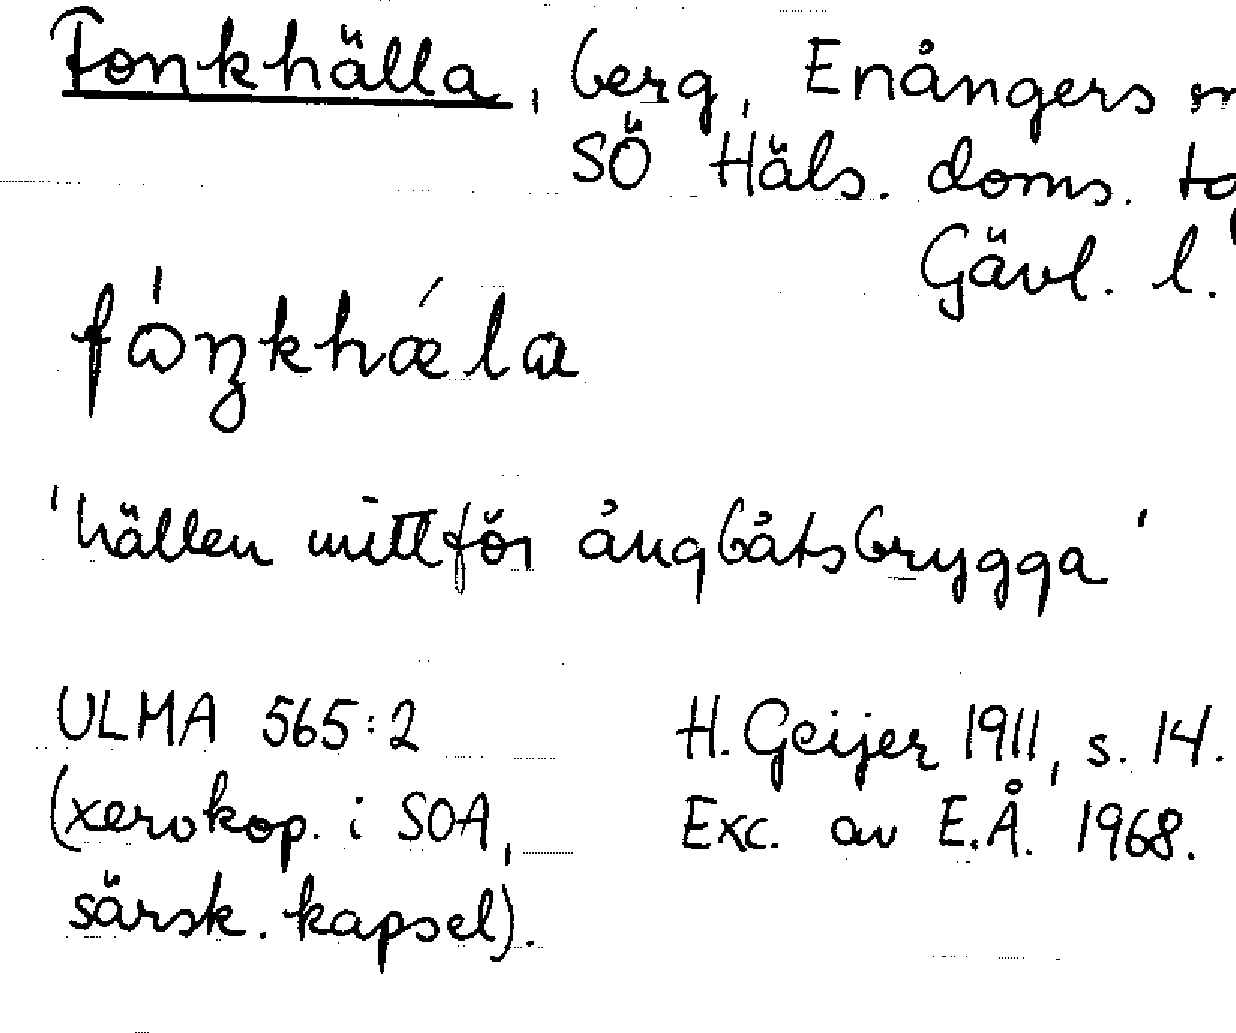 Fonkhälla, berg, Enångers
SÖ Häls. doms.
Gävl. l.
'hällen mittför ångbåtsbrygga'
ULMA 565:2 H. Geijer 1911, s. 14.
(xerokop. i SOA, Exc. av E.Å. 1968.
särsk. kapsel).